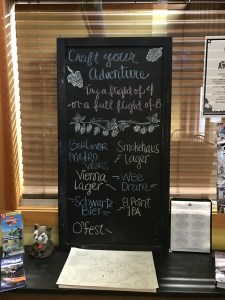 Craft your
Adventure
Try a flight of 4
or a full flight of 8
Berliner
Metro
Weiss
Smokehaus
Lager
Vienna
Lager
Wee
Dram
Schwartz
Bier
8 Point
IPA
O'Fest